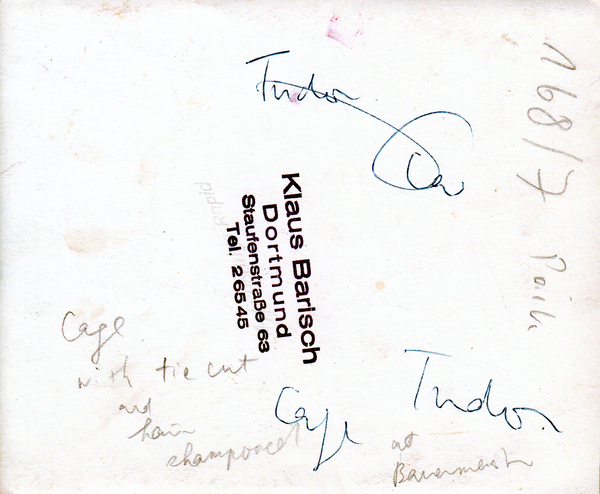 Tudor
168/7 Paik
Klaus Barisch
Dortmund
Staufenstraße 63
Tel. 26545
rapid
Cage
with tie cut
and
hair
shampooed
Cage Tudor
at
Bauermeister